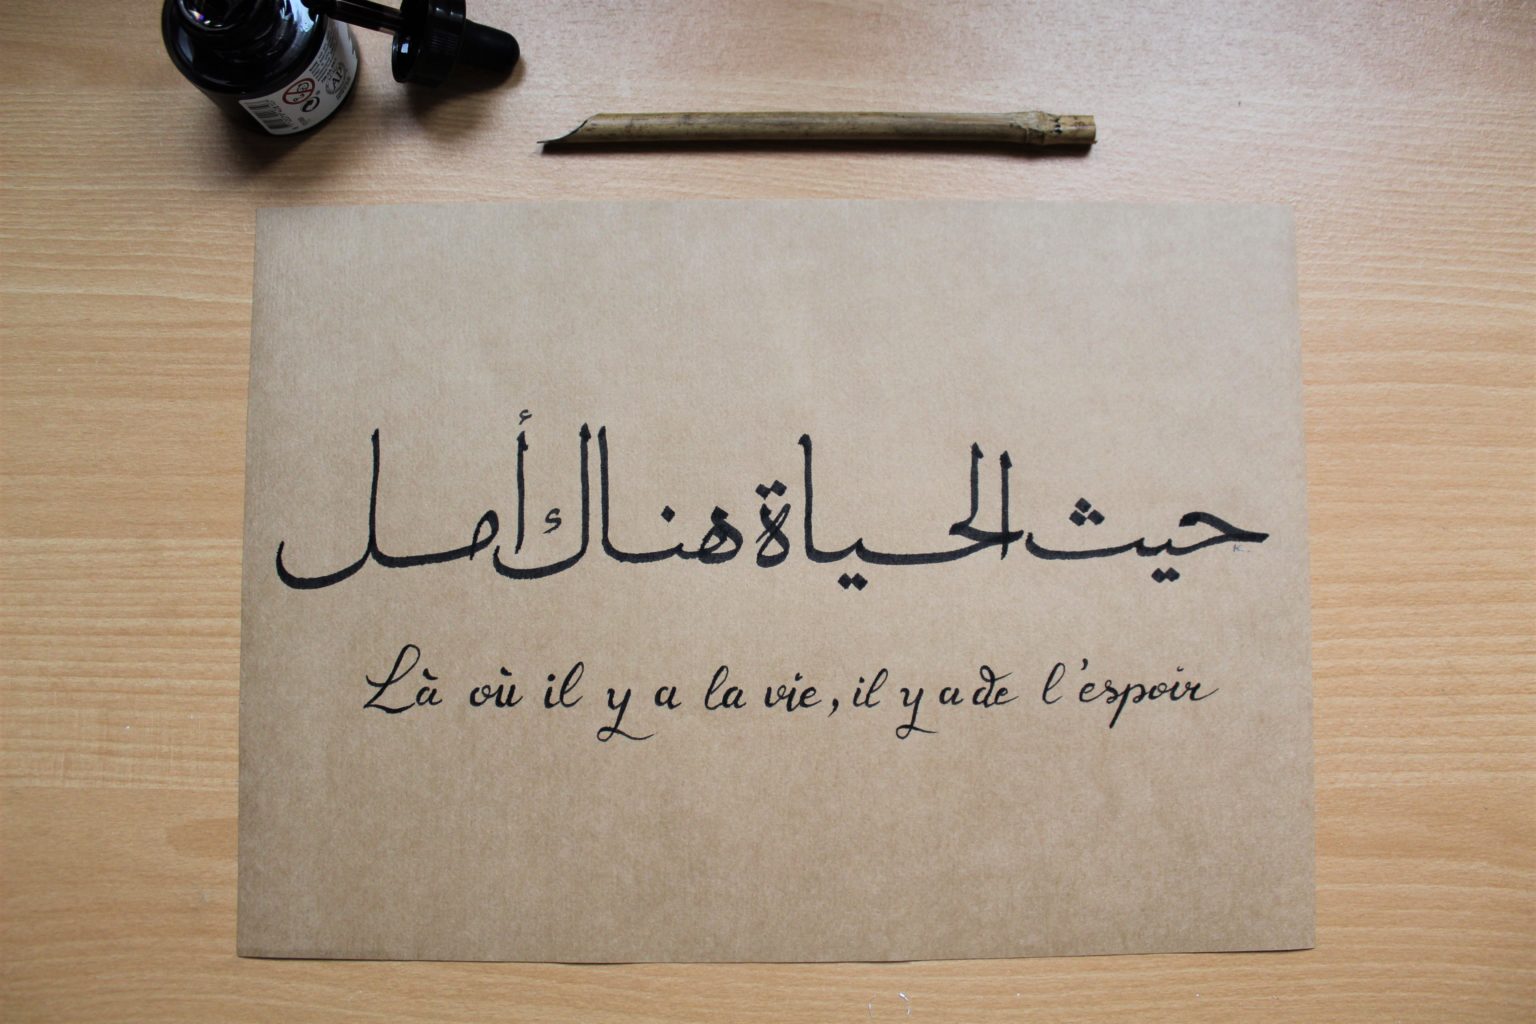 حيث الحياة هناك أمل
Là où il y a la vie, il y a de l'espoir
K.